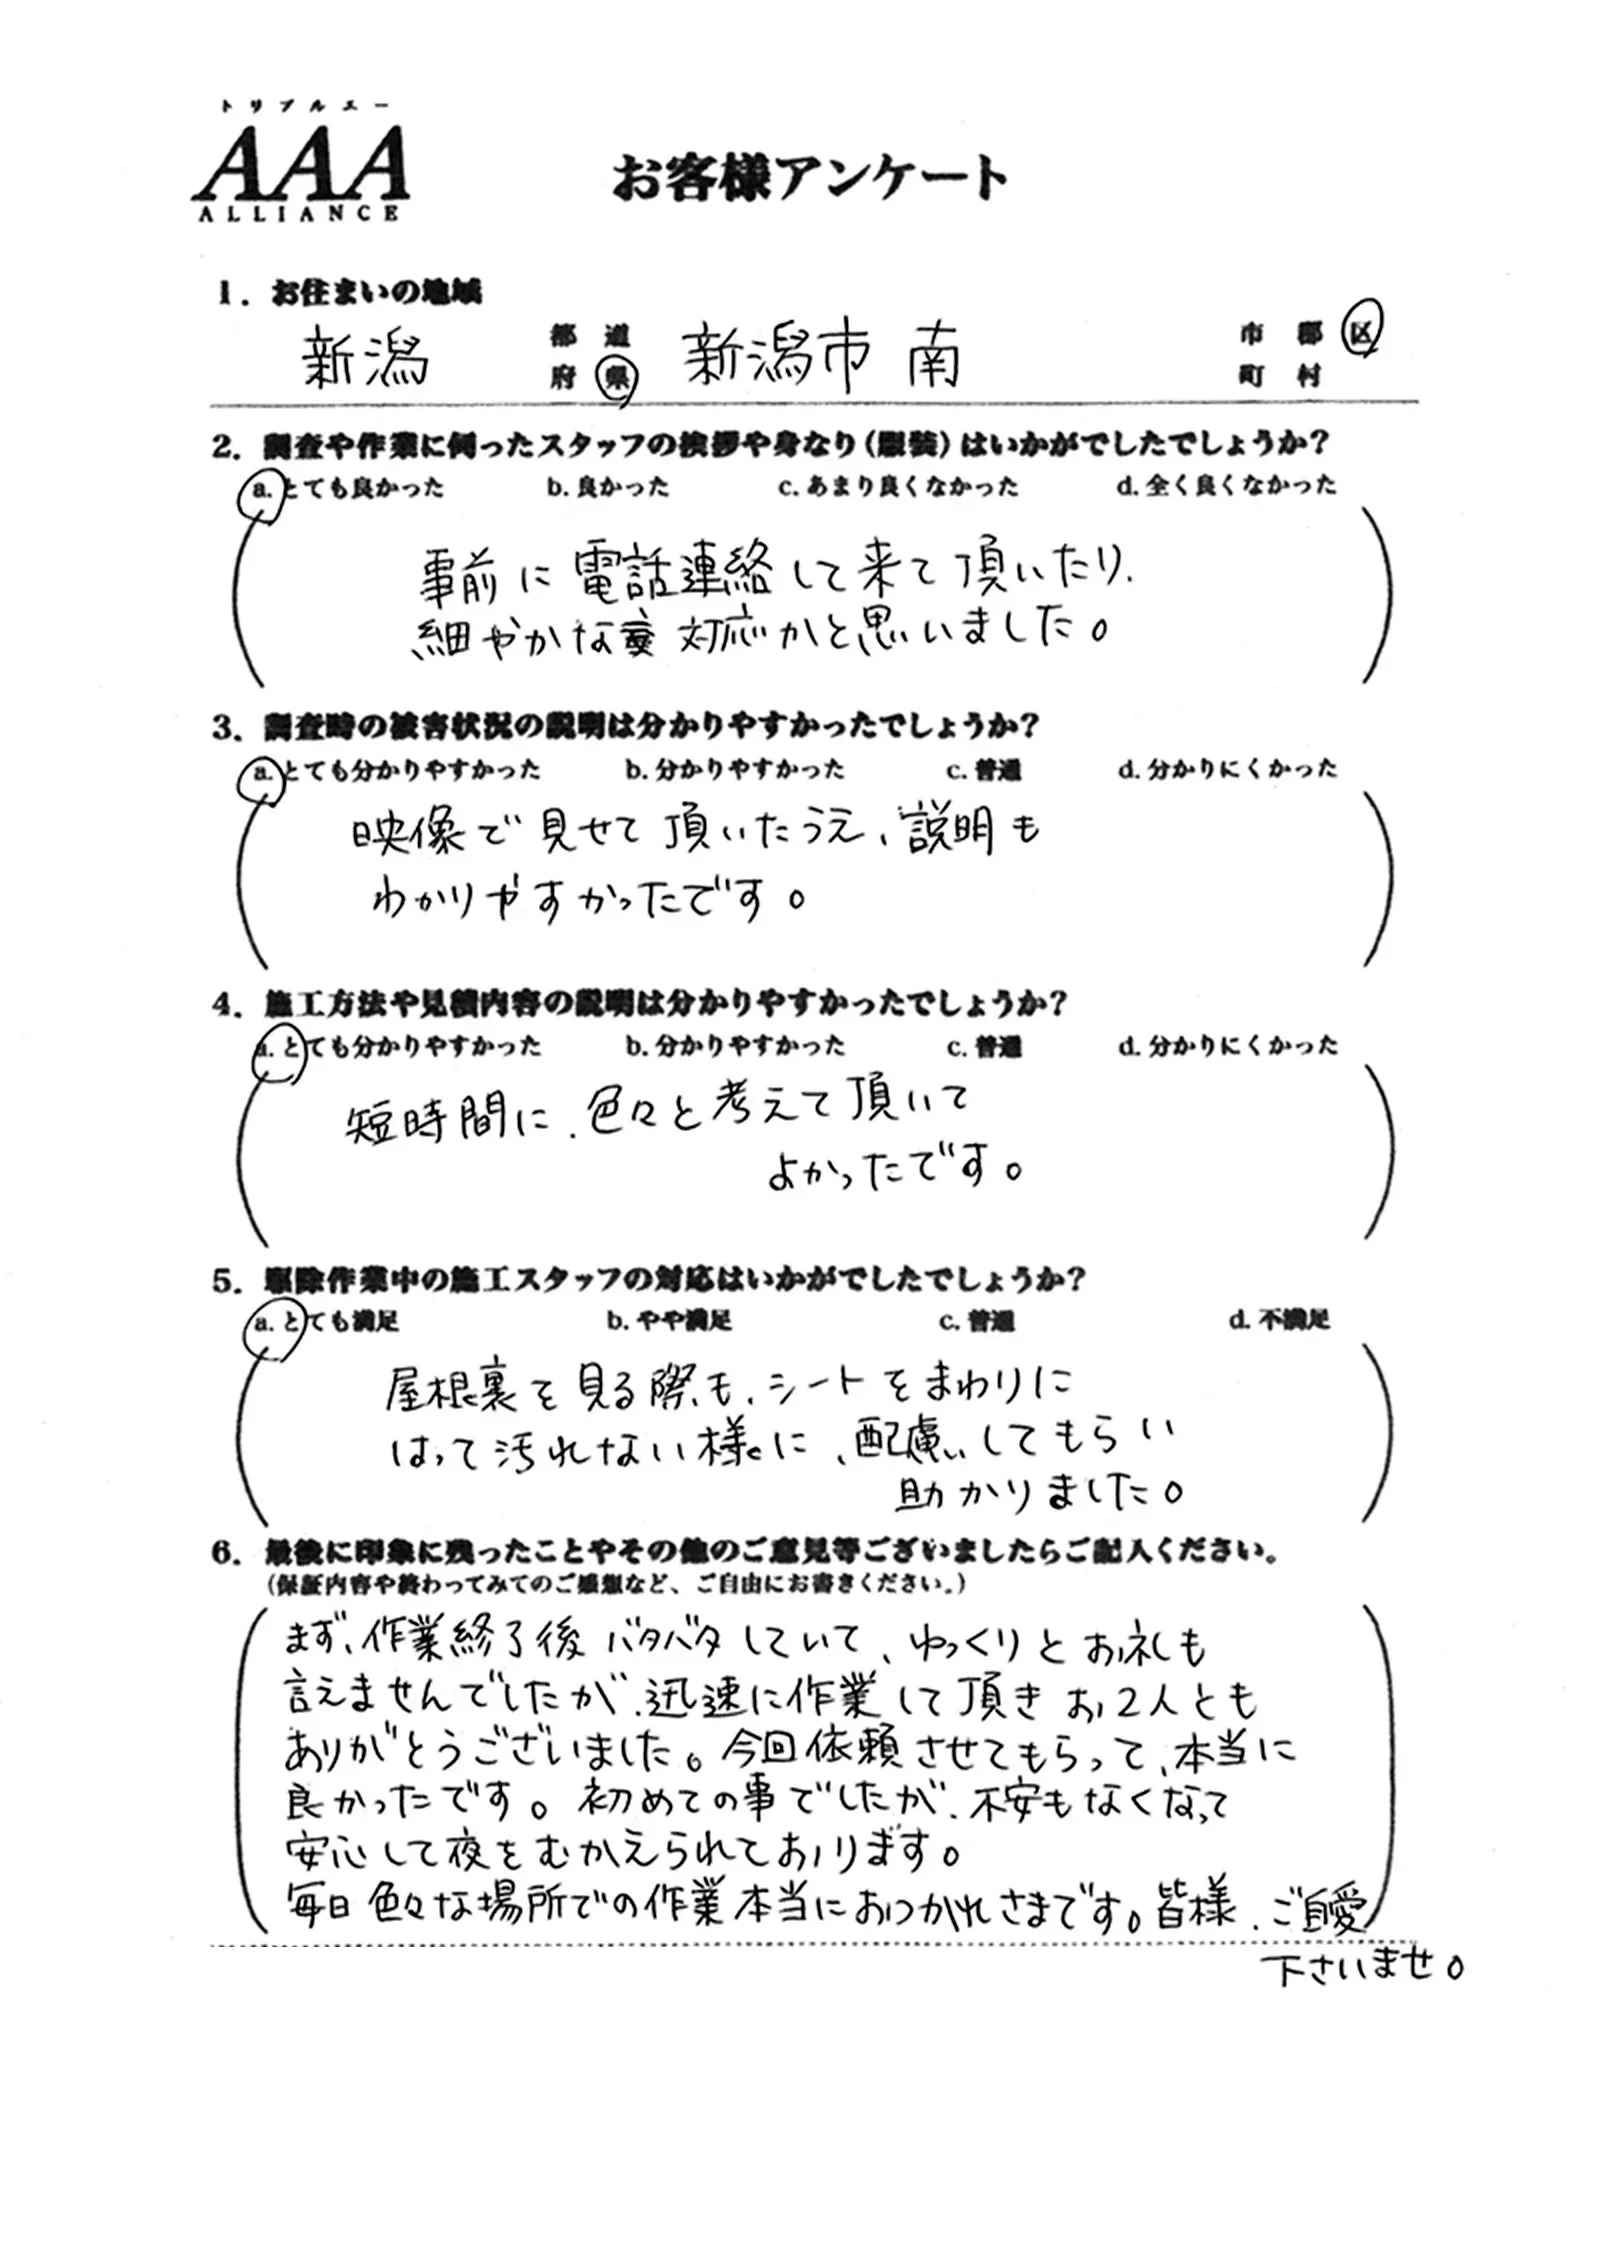 トリプルエー
AAA
ALLIANCE
お客様アンケート
1. お住まいの地域
新潟 都道府県 新潟市 南 市郡区町村
2. 調査や作業に伺ったスタッフの挨拶や身なり(服装)はいかがでしたでしょうか?
a. とても良かった b. 良かった c. あまり良くなかった d. 全く良くなかった
事前に電話連絡して来て頂いたり、
細やかな 対応かと思いました。
3. 調査時の被害状況の説明は分かりやすかったでしょうか?
a. とても分かりやすかった b. 分かりやすかった c. 普通 d. 分かりにくかった
映像で見せて頂いたうえ、説明も
わかりやすかったです。
4. 施工方法や見積内容の説明は分かりやすかったでしょうか?
a. とても分かりやすかった b. 分かりやすかった c. 普通 d. 分かりにくかった
短時間に、色々と考えて頂いて
よかったです。
5. 駆除作業中の施工スタッフの対応はいかがでしたでしょうか?
a. とても満足 b. やや満足 c. 普通 d. 不満足
屋根裏を見る際も、シートをまわりに
はって汚れない様に、配慮してもらい
助かりました。
6. 最後に印象に残ったことやその他のご意見等ございましたらご記入ください。
(保証内容や終わってみてのご感想など、ご自由にお書きください。)
まず、作業終了後バタバタしていて、ゆっくりとお礼も
言えませんでしたが、迅速に作業して頂きお2人とも
ありがとうございました。今回依頼させてもらって、本当に
良かったです。初めての事でしたが、不安もなくなって
安心して夜をむかえられております。
毎日色々な場所での作業本当におつかれさまです。皆様、ご自愛
下さいませ。